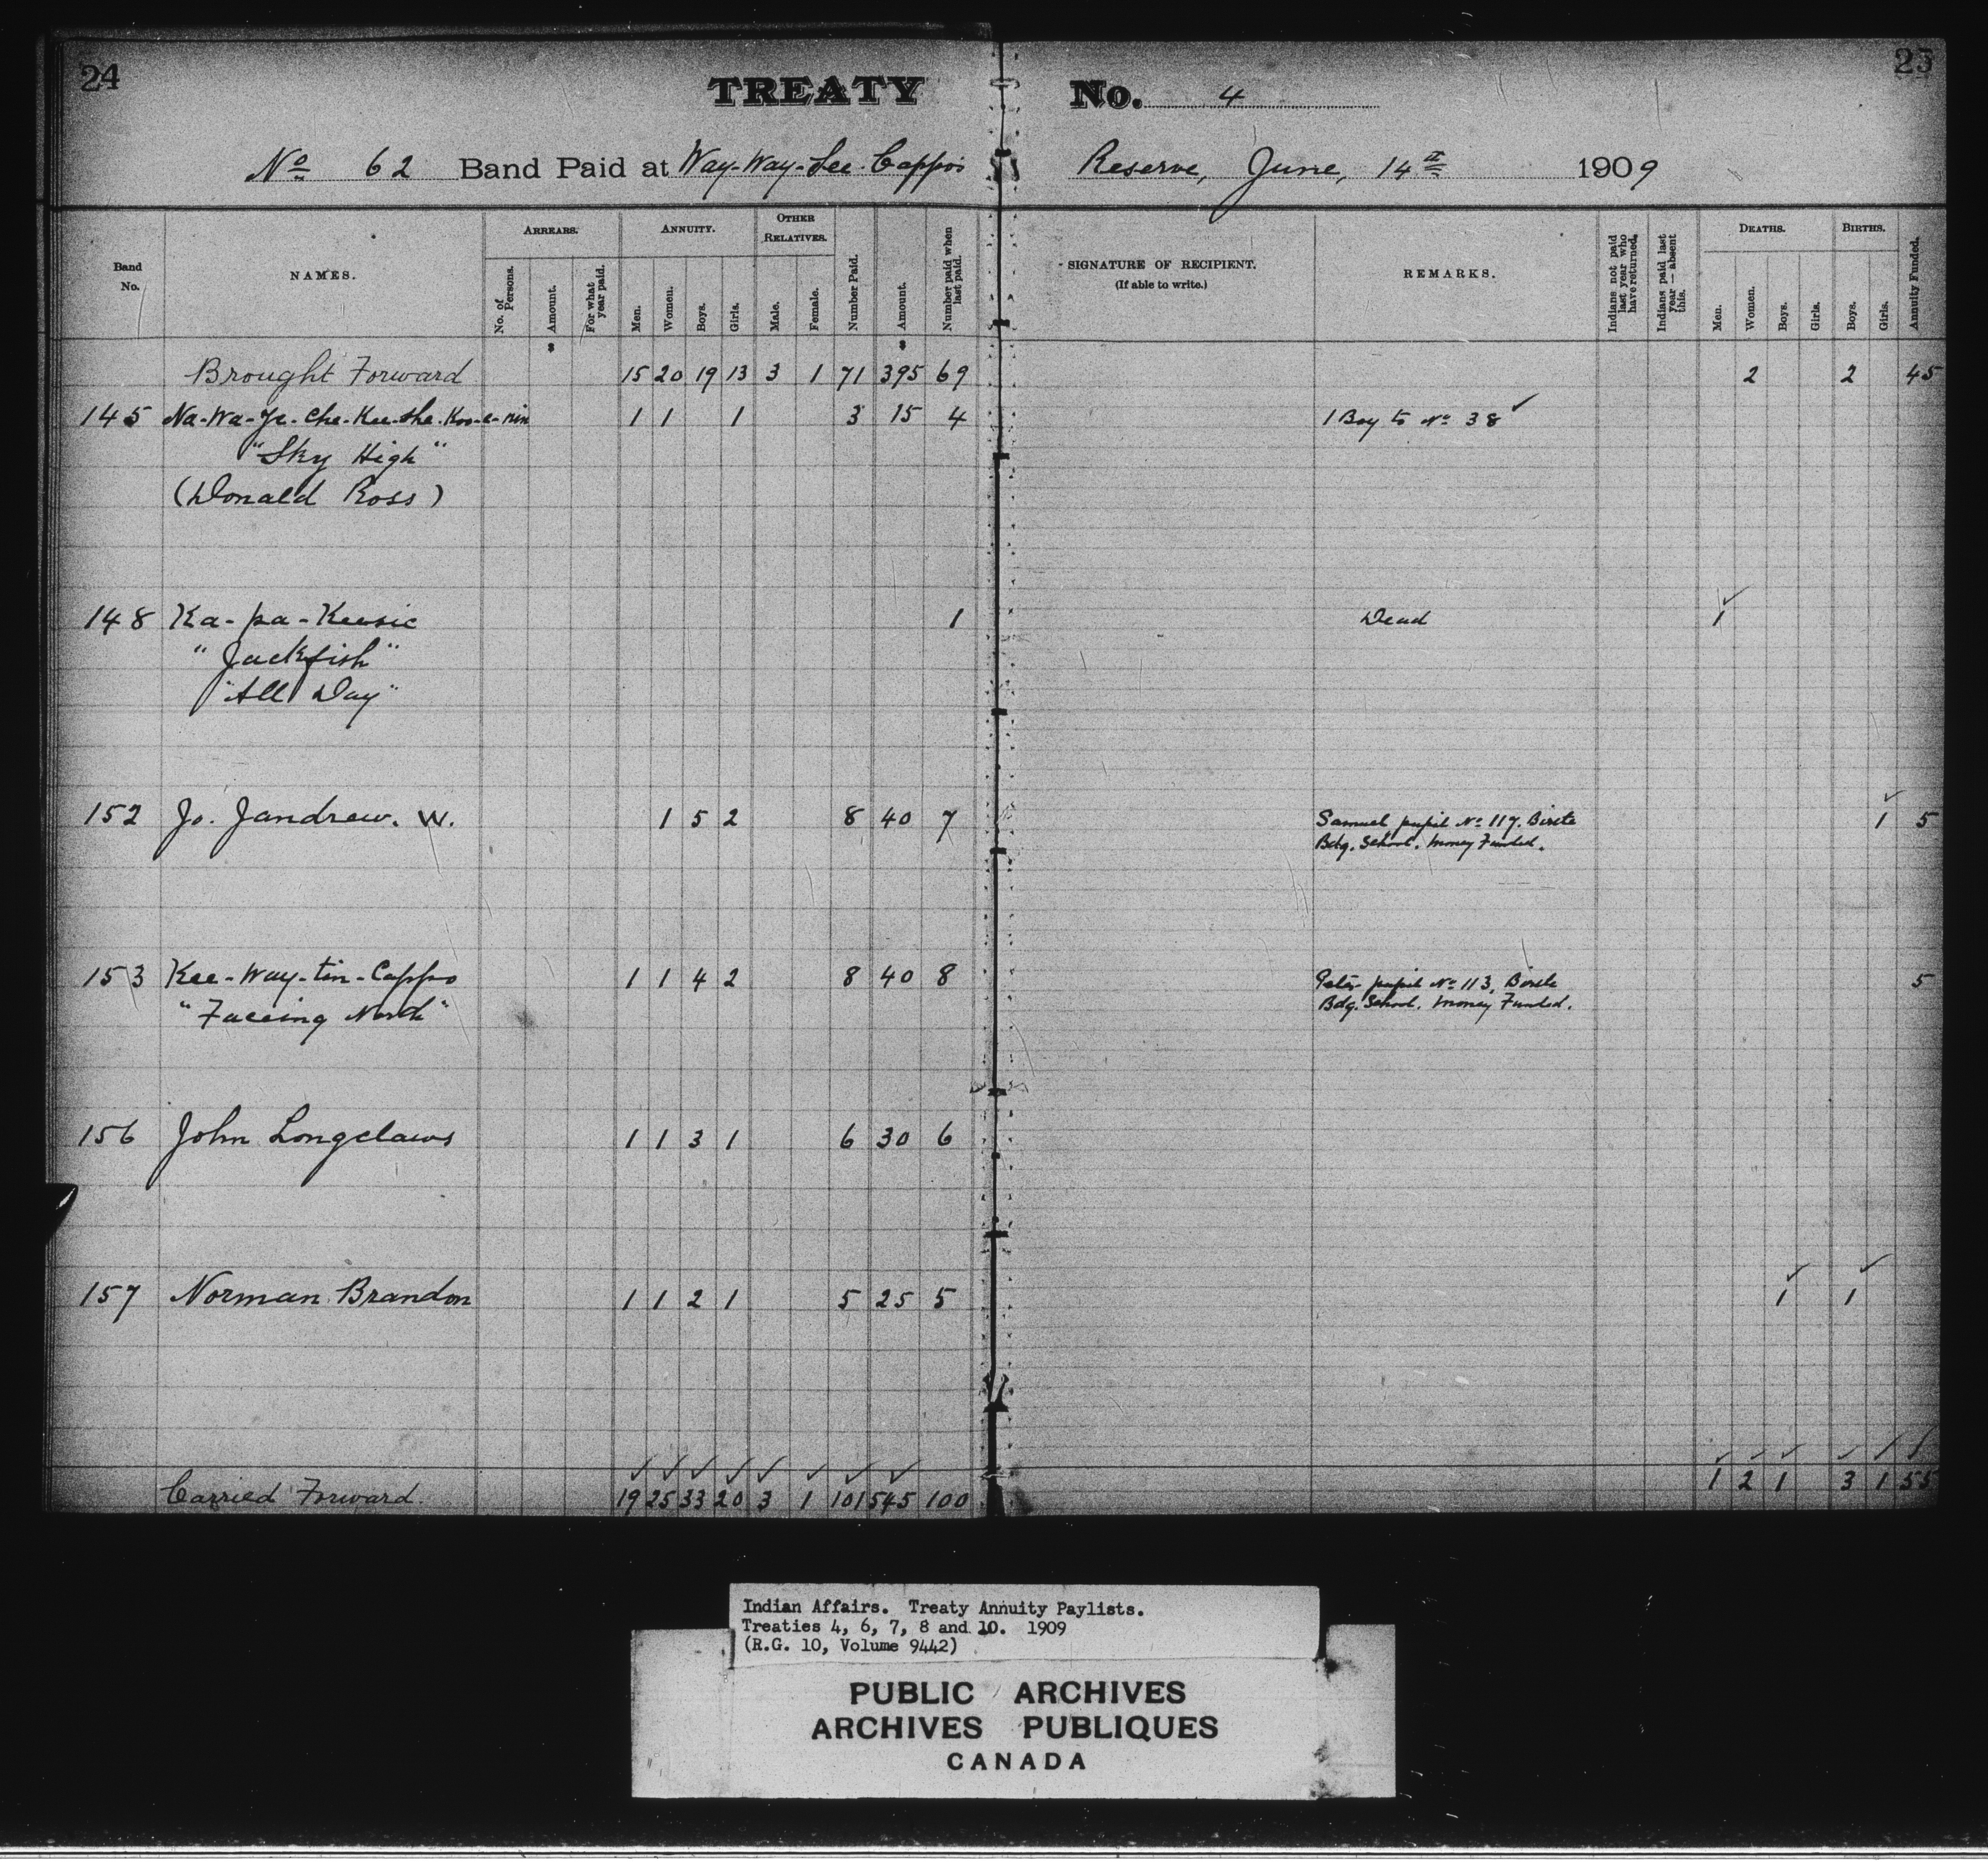 24
TREATY No. 4
25
No 62 Band Paid at Way-Way-See-Cappo's Reserve, June, 14th 1909
Band No.
NAMES.
ARREARS.
No. of Persons.
Amount.
For what year paid.
ANNUITY.
Men.
Women.
Boys.
Girls.
OTHER RELATIVES.
Male.
Female.
Number Paid.
Amount.
Number paid when last paid.
SIGNATURE OF RECIPIENT.
(If able to write.)
REMARKS.
Indians not paid last year who have returned.
Indians paid last year — absent this.
DEATHS.
Men.
Women.
Boys.
Girls.
BIRTHS.
Boys.
Girls.
Annuity Funded.
$ $
Brought Forward 15 20 19 13 3 1 71 395 69 2 2 45
145 Na-Wa-Je-Che-Kee-She-Koo-e-nin 1 1 1 3 15 4 1 Boy to No 38
"Sky High"
(Donald Ross)
148 Ka-pa-Keesic 1 Dead 1
"Jackfish"
"All Day"
152 Jo. Jandrew. W. 1 5 2 8 40 7 Samuel pupil No 117. Birtle 1 5
Bdg. School. Money Funded.
153 Kee-Way-tin-Cappo 1 1 4 2 8 40 8 Peter pupil No 113, Birtle 5
"Facing North" Bdg. School. Money Funded.
156 John Longclaws 1 1 3 1 6 30 6
157 Norman Brandon 1 1 2 1 5 25 5 1 1
Carried Forward. 19 25 33 20 3 1 101 545 100 1 2 1 3 1 55
Indian Affairs. Treaty Annuity Paylists.
Treaties 4, 6, 7, 8 and 10. 1909
(R.G. 10, Volume 9442)
PUBLIC ARCHIVES
ARCHIVES PUBLIQUES
CANADA